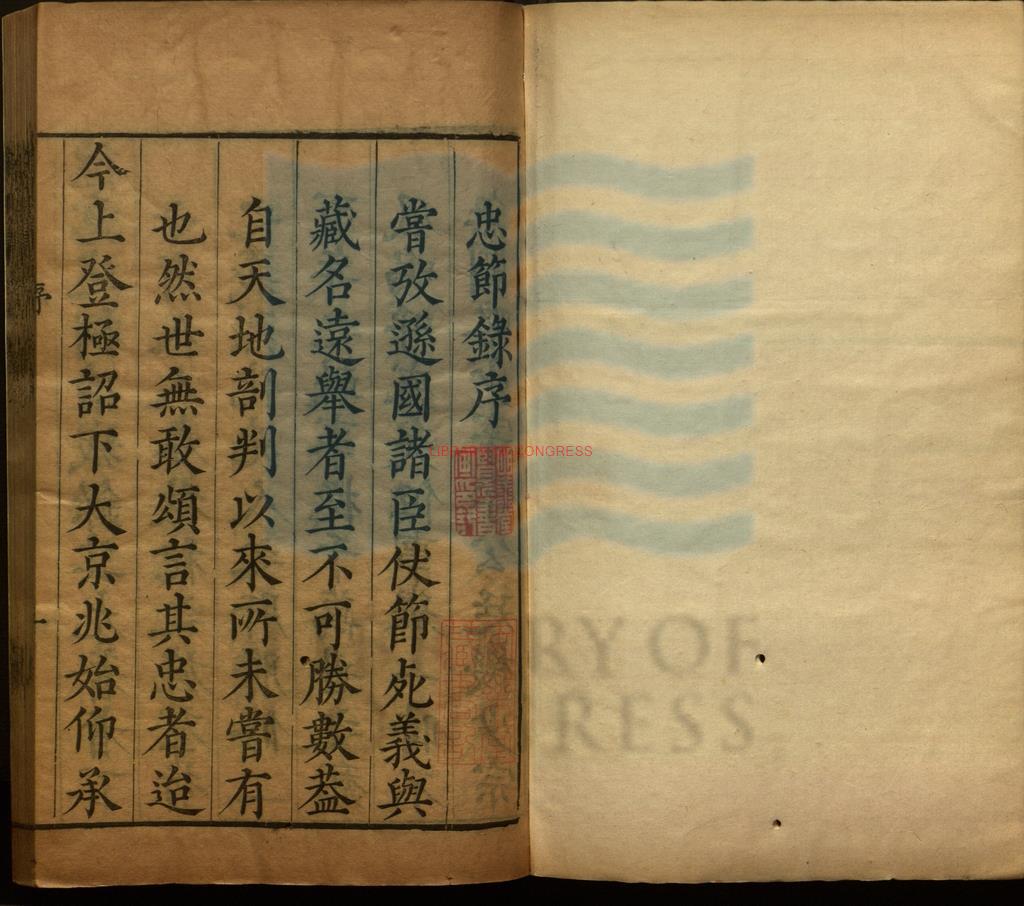 忠節錄序
嘗攷遜國諸臣仗節死義與
藏名遠舉者至不可勝數葢
自天地剖判以來所未嘗有
也然世無敢頌言其忠者迨
今上登極詔下大京兆始仰承
序
一
LIBRARY OF CONGRESS
RY OF
RESS